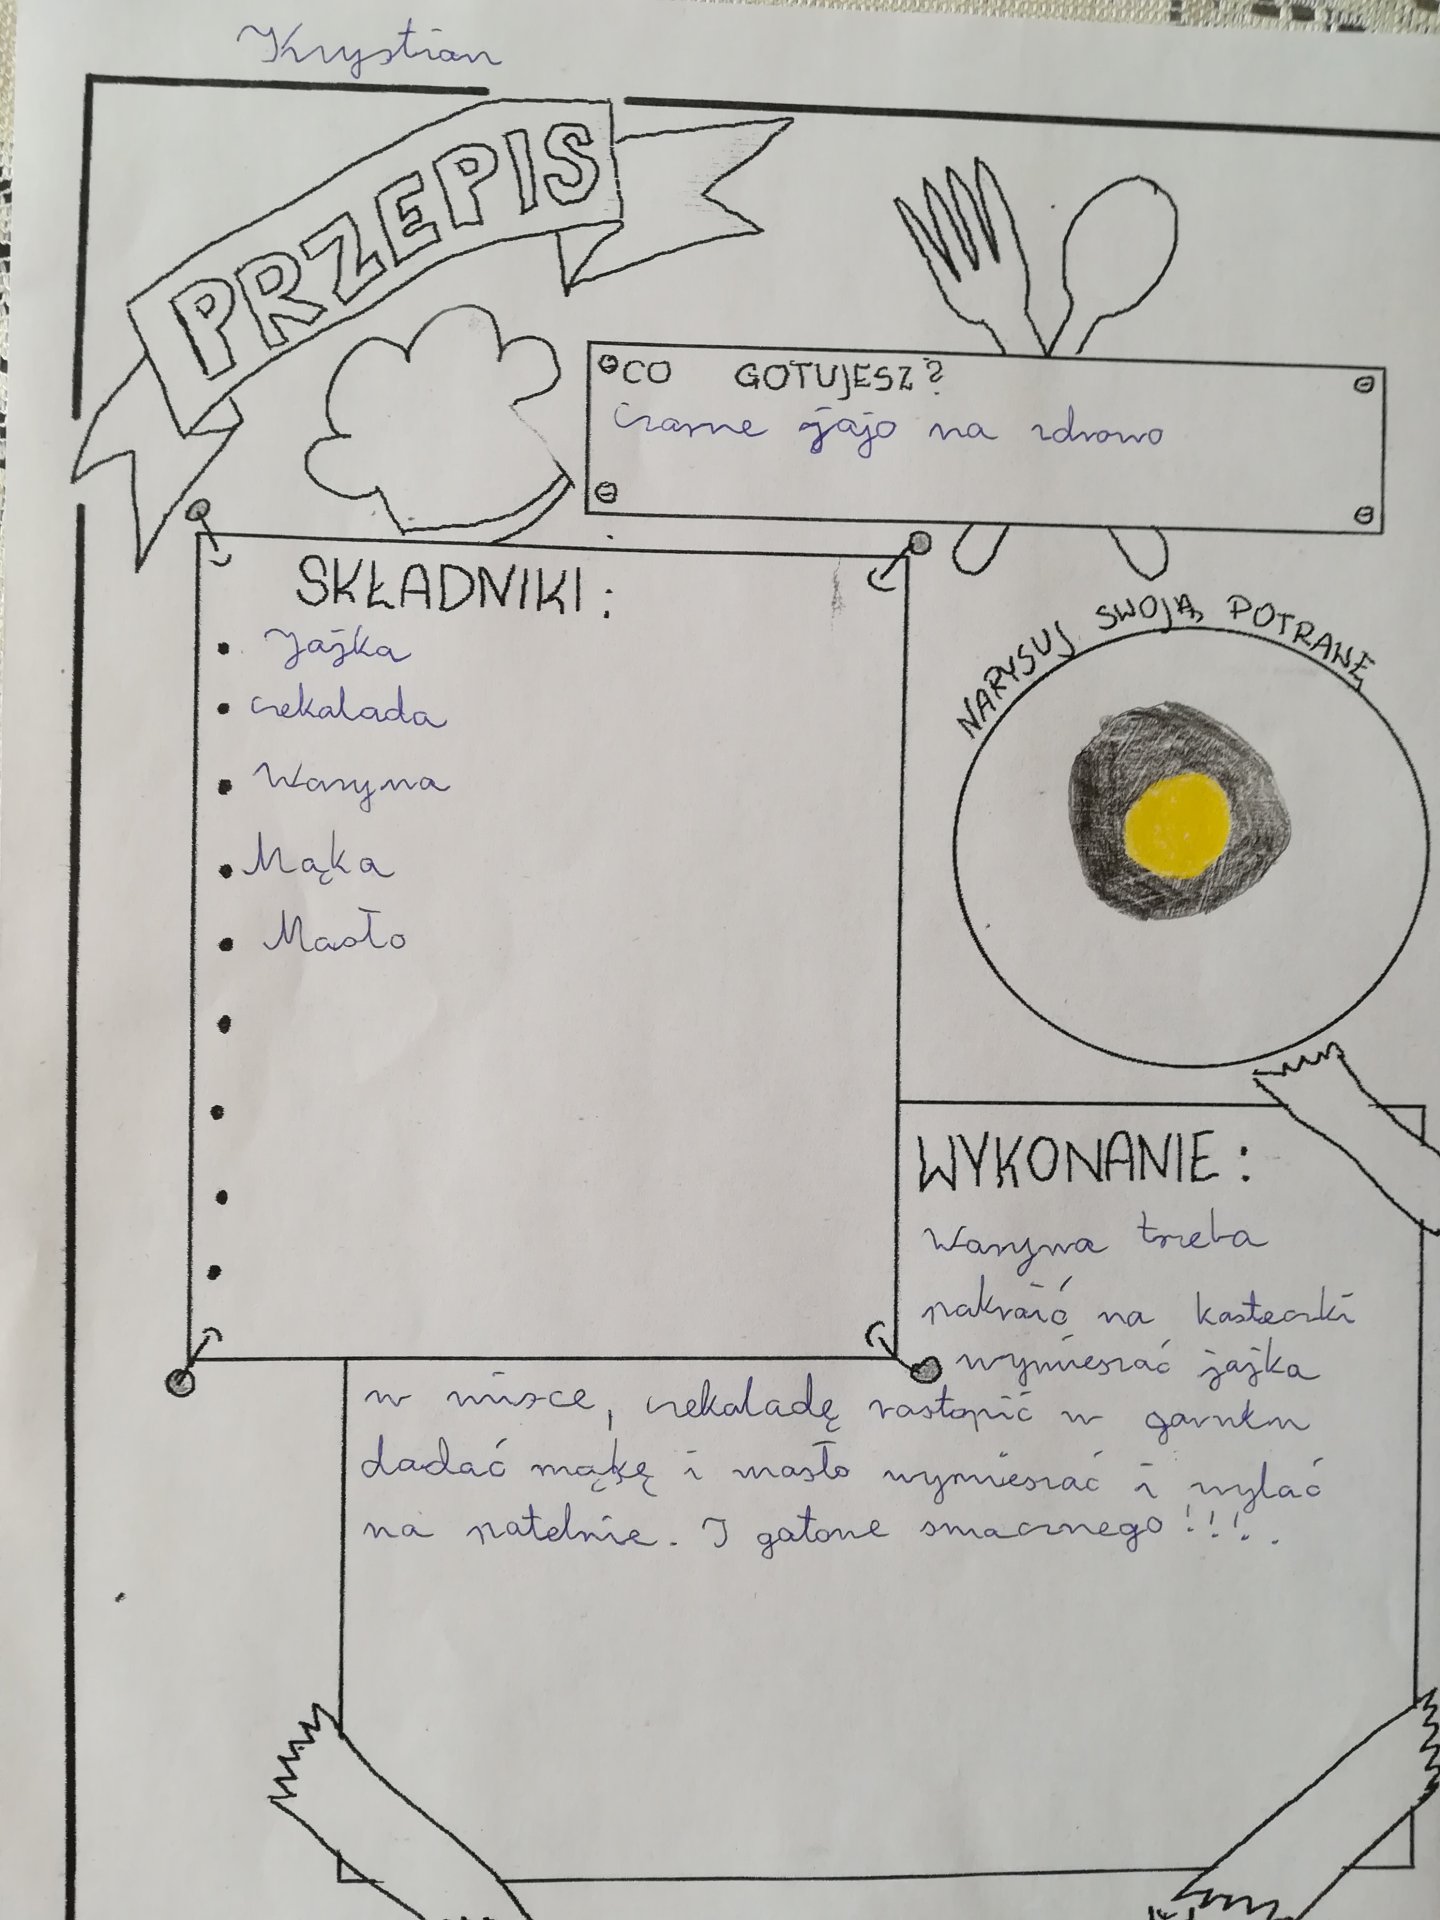 Krystian
PRZEPIS
CO GOTUJESZ?
Czarne jajo na zdrowo
SKŁADNIKI:
• Jajka
• czekolada
• Warzywa
• Mąka
• Masło
NARYSUJ SWOJĄ POTRAWĘ
WYKONANIE:
Warzywa trzeba
pokroić na kosteczki
wymieszać jajka
w misce, czekoladę rostopić w garnku
dodać mąkę i masło wymieszać i wylać
na patelnie. I gotowe smacznego !!!.